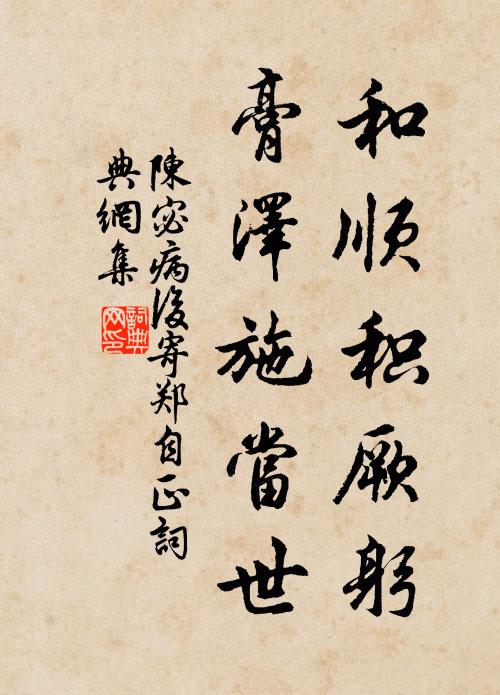 和顺积厥躬
膏澤施當世
陳宓病後寄郑自正詞
典網集
詞典
网印